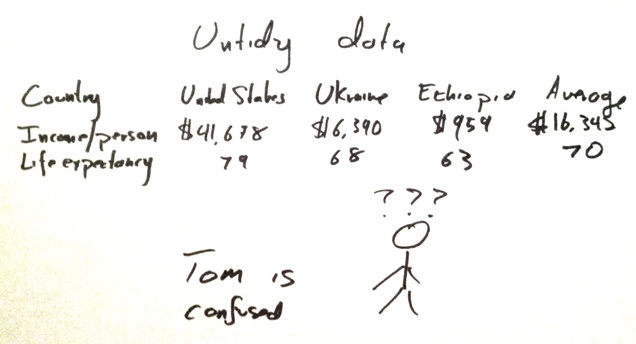 Untidy data
Country United States Ukraine Ethiopia Average
Income/person $41,678 $6,390 $959 $16,345
Life expectancy 79 68 63 70
? ? ?
Tom is
confused